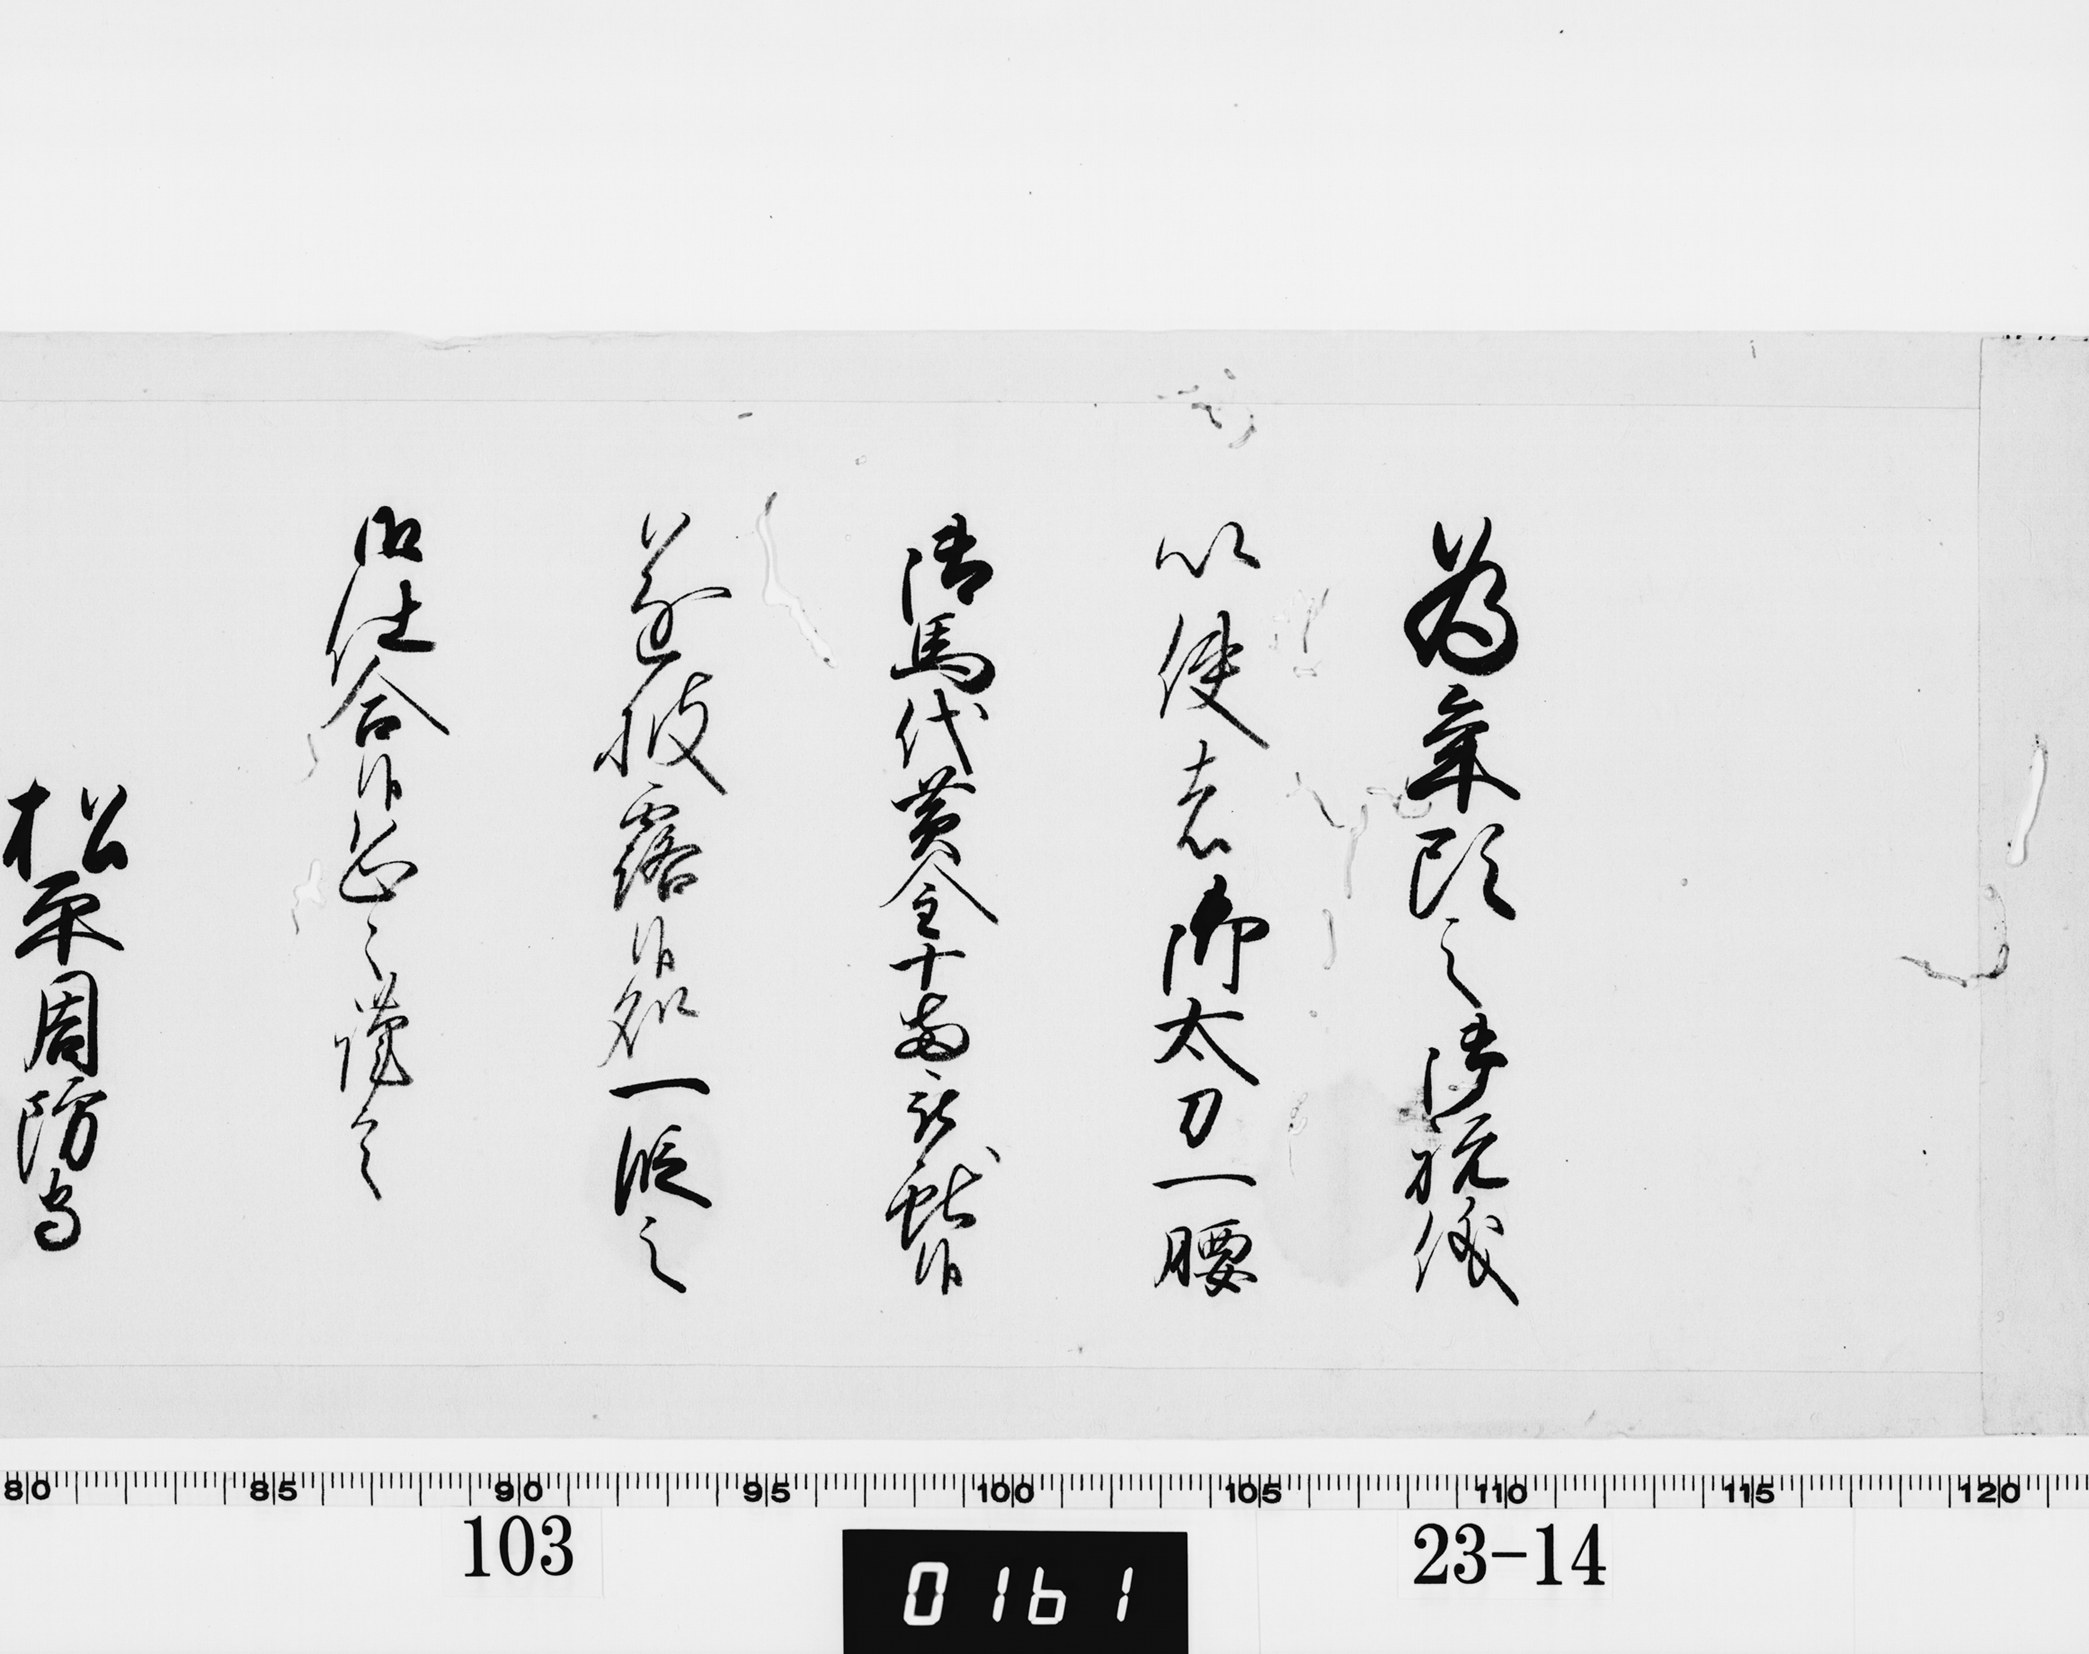 為年頭之御祝儀
以使者御太刀一腰
御馬代黄金十両被献候
遂披露候処一段之
御仕合候恐々謹言
松平周防守
80 85 90 95 100 105 110 115 120
103 0161 23-14